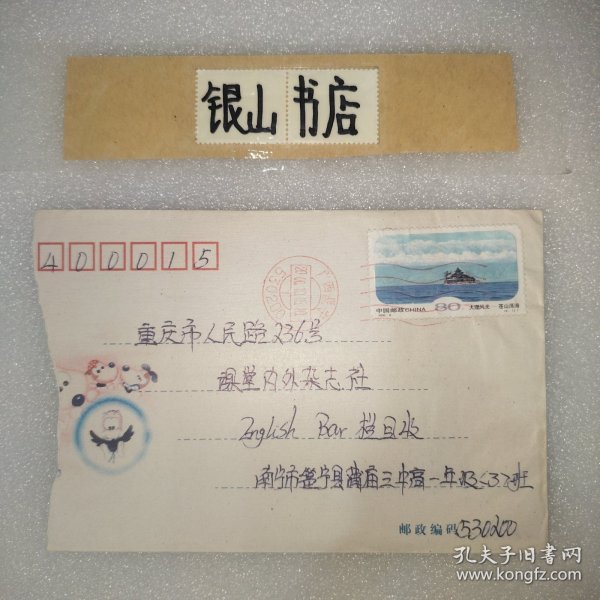 银山书店
400015
中国邮政CHINA 80 大理风光 苍山洱海
重庆市人民路236号
课堂内外杂志社
English Bar 栏目收
南宁市邕宁县蒲庙三中高一年级<3>班
邮政编码530200
孔夫子旧书网
www.kongfz.com